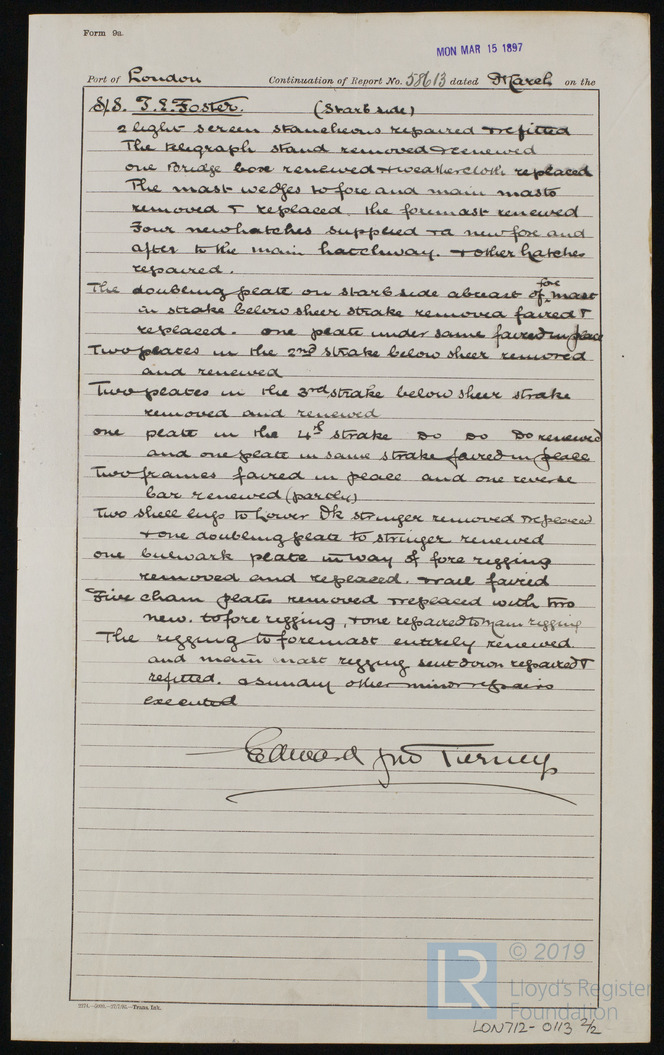 Form 9a.
MON MAR 15 1897
Port of London Continuation of Report No. 58613 dated March on the
S/S. T. E. Foster. (Starb side)
2 light screen stancheons repaired & refitted
The telegraph stand removed & renewed
one Bridge box renewed & weathercloth replaced
The mast wedges to fore and main masts
removed & replaced. the foremast renewed
Four new hatches supplied & a new fore and
after to the main hatchway. & other hatches
repaired.
The doubling plate on starb side abreast of fore mast
in strake below sheer strake removed faired &
replaced. one plate under same faired in place
Two plates in the 2nd strake below sheer removed
and renewed
Two plates in the 3rd strake below sheer strake
removed and renewed
one plate in the 4th strake Do Do Do renewed
and one plate in same strake faired in place
Two frames faired in place and one reverse
bar renewed (partly)
Two shell lugs to Lower Dk stringer removed & replaced
& one doubling plate to stringer renewed
one bulwark plate in way of fore rigging
removed and replaced. & rail faired
Five chain plates removed & replaced with two
new. to fore rigging, & one repaired to Main rigging
The rigging to foremast entirely renewed
and main mast rigging sent down repaired &
refitted. & sundry other minor repairs
executed
Edward Jno Tierney
2274.—5000.—27/7/95.—Trans. Ink.
LR
© 2019
Lloyd's Register
Foundation
LON712-0113 2/2